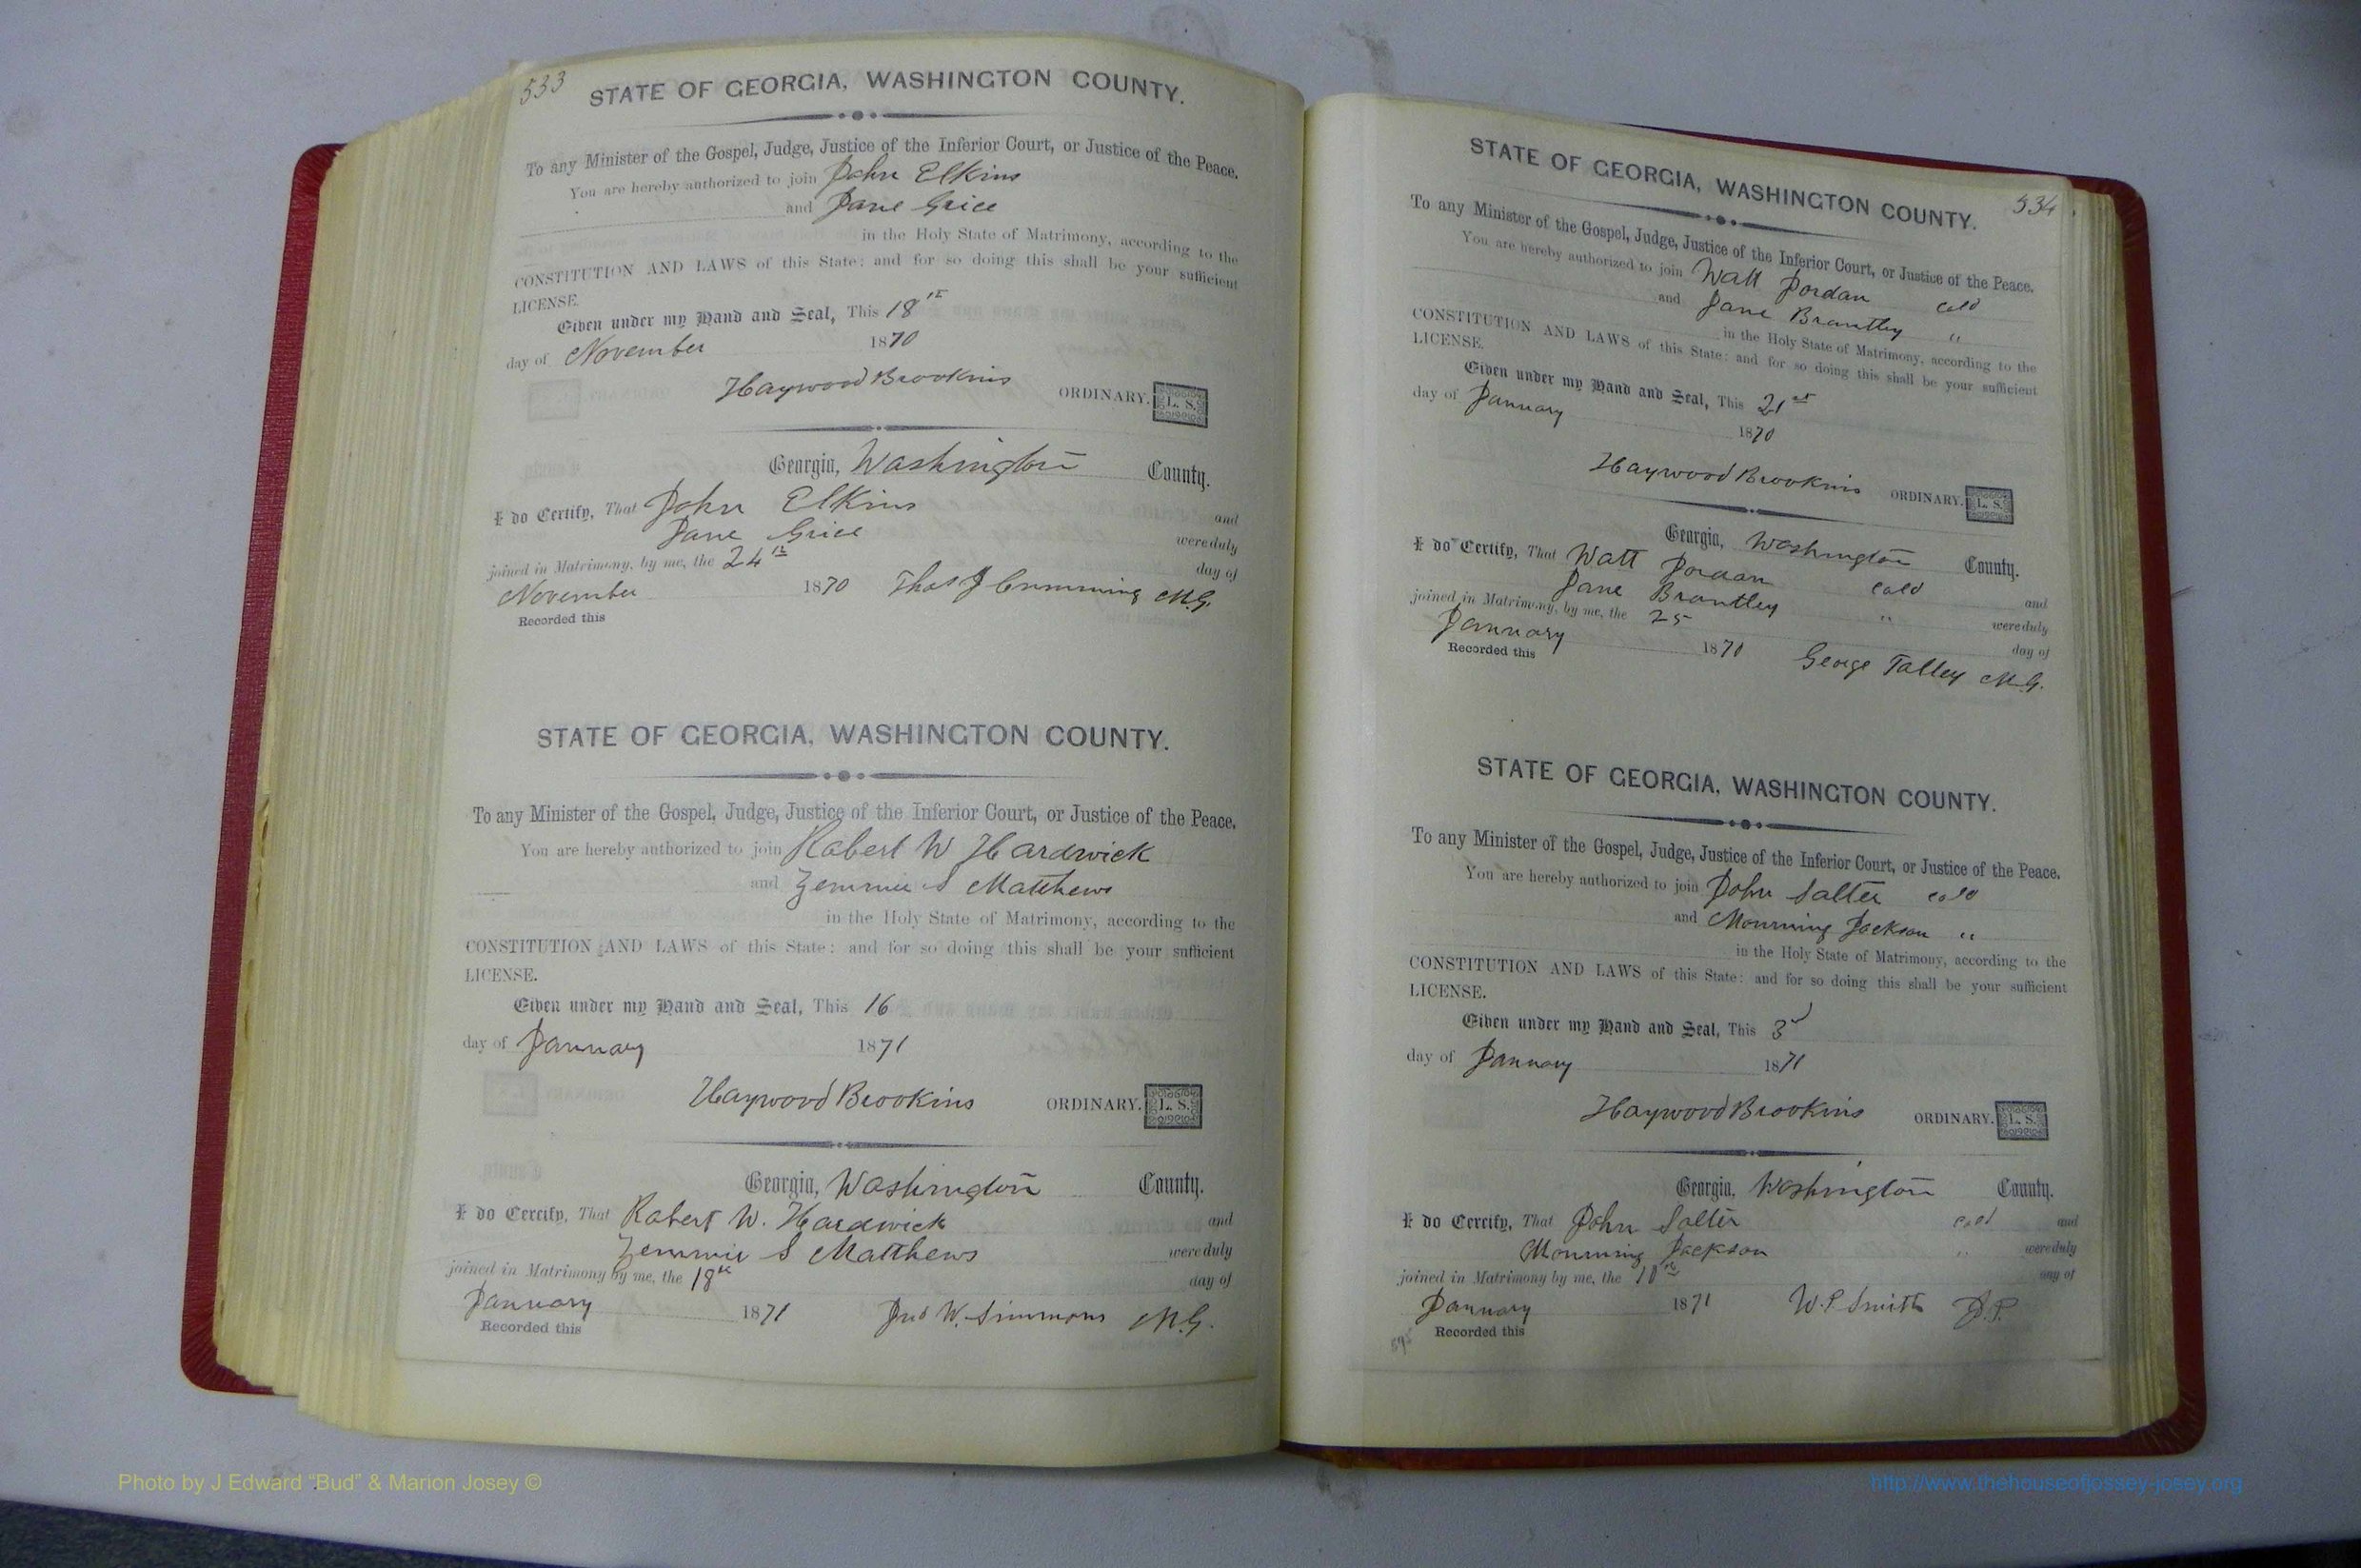 533
STATE OF GEORGIA, WASHINGTON COUNTY.
To any Minister of the Gospel, Judge, Justice of the Inferior Court, or Justice of the Peace.
You are hereby authorized to join John Elkins
and Jane Grice
in the Holy State of Matrimony, according to the
CONSTITUTION AND LAWS of this State: and for so doing this shall be your sufficient
LICENSE.
Given under my Hand and Seal, This 18th
day of November 1870
Haywood Brookins ORDINARY. L. S.
Georgia, Washington County.
I do Certify, That John Elkins and
Jane Grice were duly
joined in Matrimony, by me, the 24th day of
November 1870 Thos J Cumming M.G.
Recorded this
STATE OF GEORGIA, WASHINGTON COUNTY.
To any Minister of the Gospel, Judge, Justice of the Inferior Court, or Justice of the Peace.
You are hereby authorized to join Robert W Hardwick
and Zemmie S Matthews
in the Holy State of Matrimony, according to the
CONSTITUTION AND LAWS of this State: and for so doing this shall be your sufficient
LICENSE.
Given under my Hand and Seal, This 16
day of January 1871
Haywood Brookins ORDINARY. L. S.
Georgia, Washington County.
I do Certify, That Robert W. Hardwick and
Zemmie S Matthews were duly
joined in Matrimony by me, the 18th day of
January 1871 Jno W. Simmons M.G.
Recorded this
534
STATE OF GEORGIA, WASHINGTON COUNTY.
To any Minister of the Gospel, Judge, Justice of the Inferior Court, or Justice of the Peace.
You are hereby authorized to join Watt Jordan cold
and Jane Brantley "
in the Holy State of Matrimony, according to the
CONSTITUTION AND LAWS of this State: and for so doing this shall be your sufficient
LICENSE.
Given under my Hand and Seal, This 21st
day of January 1870
Haywood Brookins ORDINARY. L. S.
Georgia, Washington County.
I do Certify, That Watt Jordan cold and
Jane Brantley " were duly
joined in Matrimony, by me, the 25 day of
January 1870 George Talley M.G.
Recorded this
STATE OF GEORGIA, WASHINGTON COUNTY.
To any Minister of the Gospel, Judge, Justice of the Inferior Court, or Justice of the Peace.
You are hereby authorized to join John Salter cold
and Mourning Jackson "
in the Holy State of Matrimony, according to the
CONSTITUTION AND LAWS of this State: and for so doing this shall be your sufficient
LICENSE.
Given under my Hand and Seal, This 3d
day of January 1871
Haywood Brookins ORDINARY. L. S.
Georgia, Washington County.
I do Certify, That John Salter cold and
Mourning Jackson " were duly
joined in Matrimony by me, the 10th day of
January 1871 W.P. Smith J.P.
Recorded this
Photo by J Edward "Bud" & Marion Josey ©
http://www.thehouseofjossey-josey.org